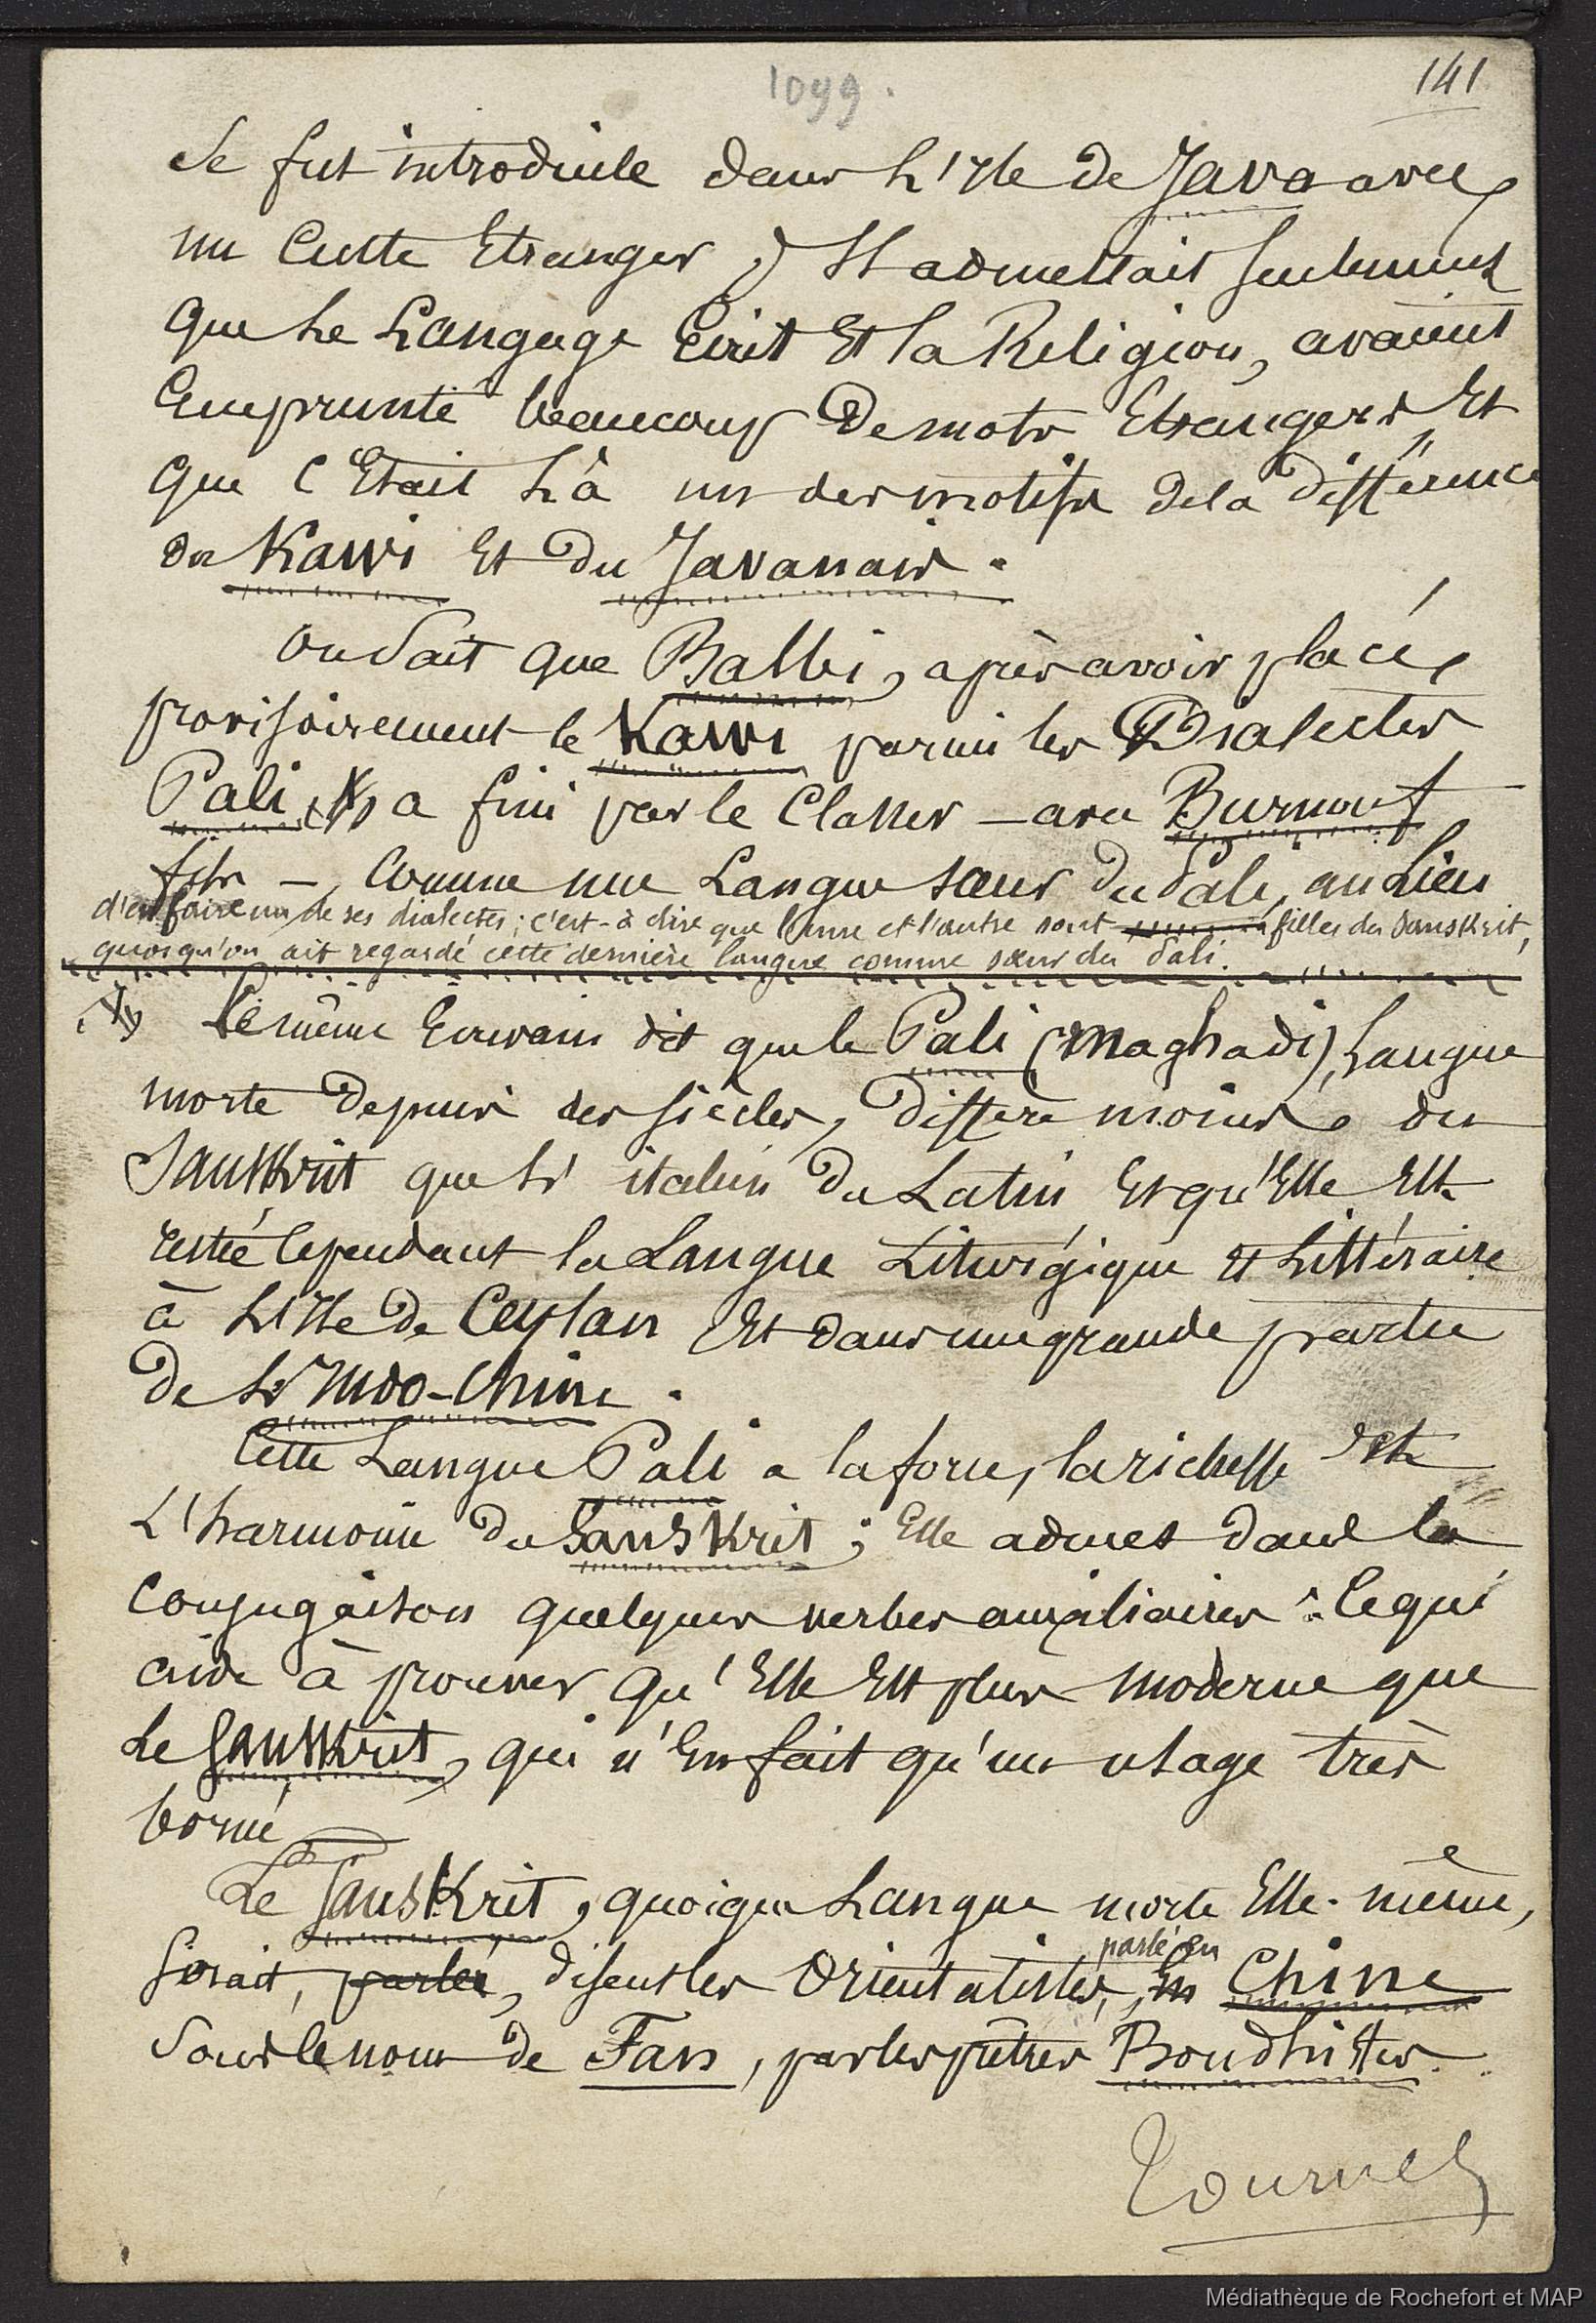 1099.
141
Se fut introduite dans L'Ile de Java avec
un Culte Etranger, Il admettait seulement
que Le Langage Ecrit Et la Religion, avaient
Emprunté beaucoup de mots Etrangers, Et
que C'Etait Là un des motifs de la différence
du Kawi Et du Javanais.
On Sait que Balbi, après avoir placé,
provisoirement le Kawi parmi les Dialectes
Pali, a fini par le Classer — avec Burnouf
fils —, Comme une Langue sœur du Pali, au Lieu
d'en faire un de ses dialectes; c'est-à-dire que l'une et l'autre sont filles du Sanskrit,
quoiqu'on ait regardé cette dernière langue comme sœur du Pali.
Le même Ecrivain dit que le Pali (Maghadi), Langue
morte depuis des siècles, Diffère moins, du
Sanskrit que L'italien du Latin Et qu'Elle Est
restée Cependant la Langue Liturgique et Littéraire
à L'Ile de Ceylan Et dans une grande partie
de L'Indo-Chine.
Cette Langue Pali a la force, la richesse Et
L'harmonie du Sanskrit; Elle admet dans la
Conjugaison quelques verbes auxiliaires: Ce qui
aide à prouver qu'Elle Est plus moderne que
Le Sanskrit, qui n'En fait qu'un usage très
borné.
Le Sanskrit, quoique Langue morte Elle-même,
Serait, parler, disent les Orientalistes, parlé en En Chine
Sous le nom de Fan, par les prêtres Boudhistes.
Tournel
Médiathèque de Rochefort et MAP